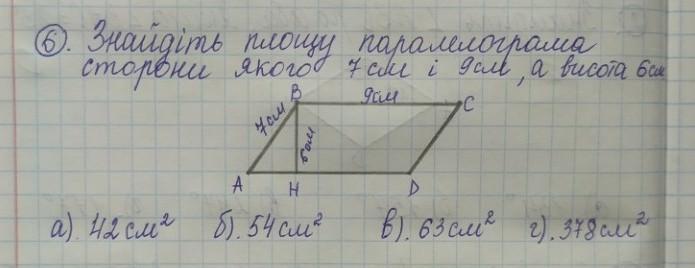 6. Знайдіть площу паралелограма
сторони якого 7см і 9см, а висота 6см
B 9см C
7см
6см
A H D
а). 42см² б). 54см² в). 63см² г). 378см²